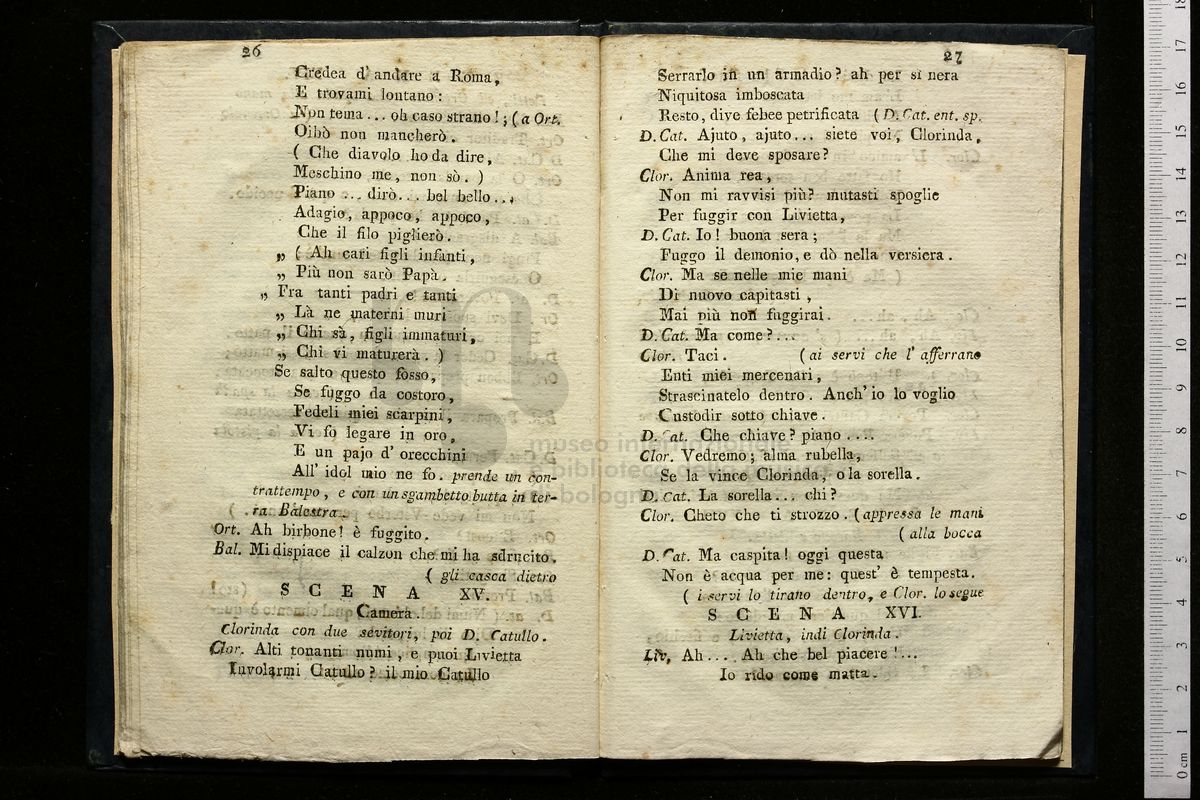 26
Credea d' andare a Roma,
E trovami lontano:
Non tema... oh caso strano!; (a Ort.
Oibò non mancherò.
( Che diavolo ho da dire,
Meschino me, non sò. )
Piano ... dirò... bel bello...
Adagio, appoco, appoco,
Che il filo piglierò.
„ ( Ah cari figli infanti,
„ Più non sarò Papà.
„ Fra tanti padri e tanti
„ Là ne materni muri
„ Chi sà, figli immaturi,
„ Chi vi maturerà. )
Se salto questo fosso,
Se fuggo da costoro,
Fedeli miei scarpini,
Vi fo legare in oro,
E un pajo d' orecchini
All' idol mio ne fo. prende un con-
trattempo, e con un sgambetto butta in ter-
ra Balestra.
Ort. Ah birbone! è fuggito.
Bal. Mi dispiace il calzon che mi ha sdrucito.
( gli casca dietro
SCENA XV.
Camera.
Clorinda con due sevitori, poi D. Catullo.
Clor. Alti tonanti numi, e puoi Livietta
Involarmi Catullo? il mio Catullo
27
Serrarlo in un armadio? ah per sì nera
Niquitosa imboscata
Resto, dive febee petrificata (D. Cat. ent. sp.
D. Cat. Ajuto, ajuto... siete voi, Clorinda,
Che mi deve sposare?
Clor. Anima rea,
Non mi ravvisi più? mutasti spoglie
Per fuggir con Livietta,
D. Cat. Io! buona sera;
Fuggo il demonio, e dò nella versiera.
Clor. Ma se nelle mie mani
Di nuovo capitasti,
Mai più non fuggirai.
D. Cat. Ma come?...
Clor. Taci. (ai servi che l' afferrano
Enti miei mercenari,
Strascinatelo dentro. Anch' io lo voglio
Custodir sotto chiave.
D. Cat. Che chiave? piano ....
Clor. Vedremo; alma rubella,
Se la vince Clorinda, o la sorella.
D. Cat. La sorella... chi?
Clor. Cheto che ti strozzo. (appressa le mani
(alla bocca
D. Cat. Ma caspita! oggi questa
Non è acqua per me: quest' è tempesta.
( i servi lo tirano dentro, e Clor. lo segue
SCENA XVI.
Livietta, indi Clorinda.
Liv. Ah.... Ah che bel piacere!...
Io rido come matta.